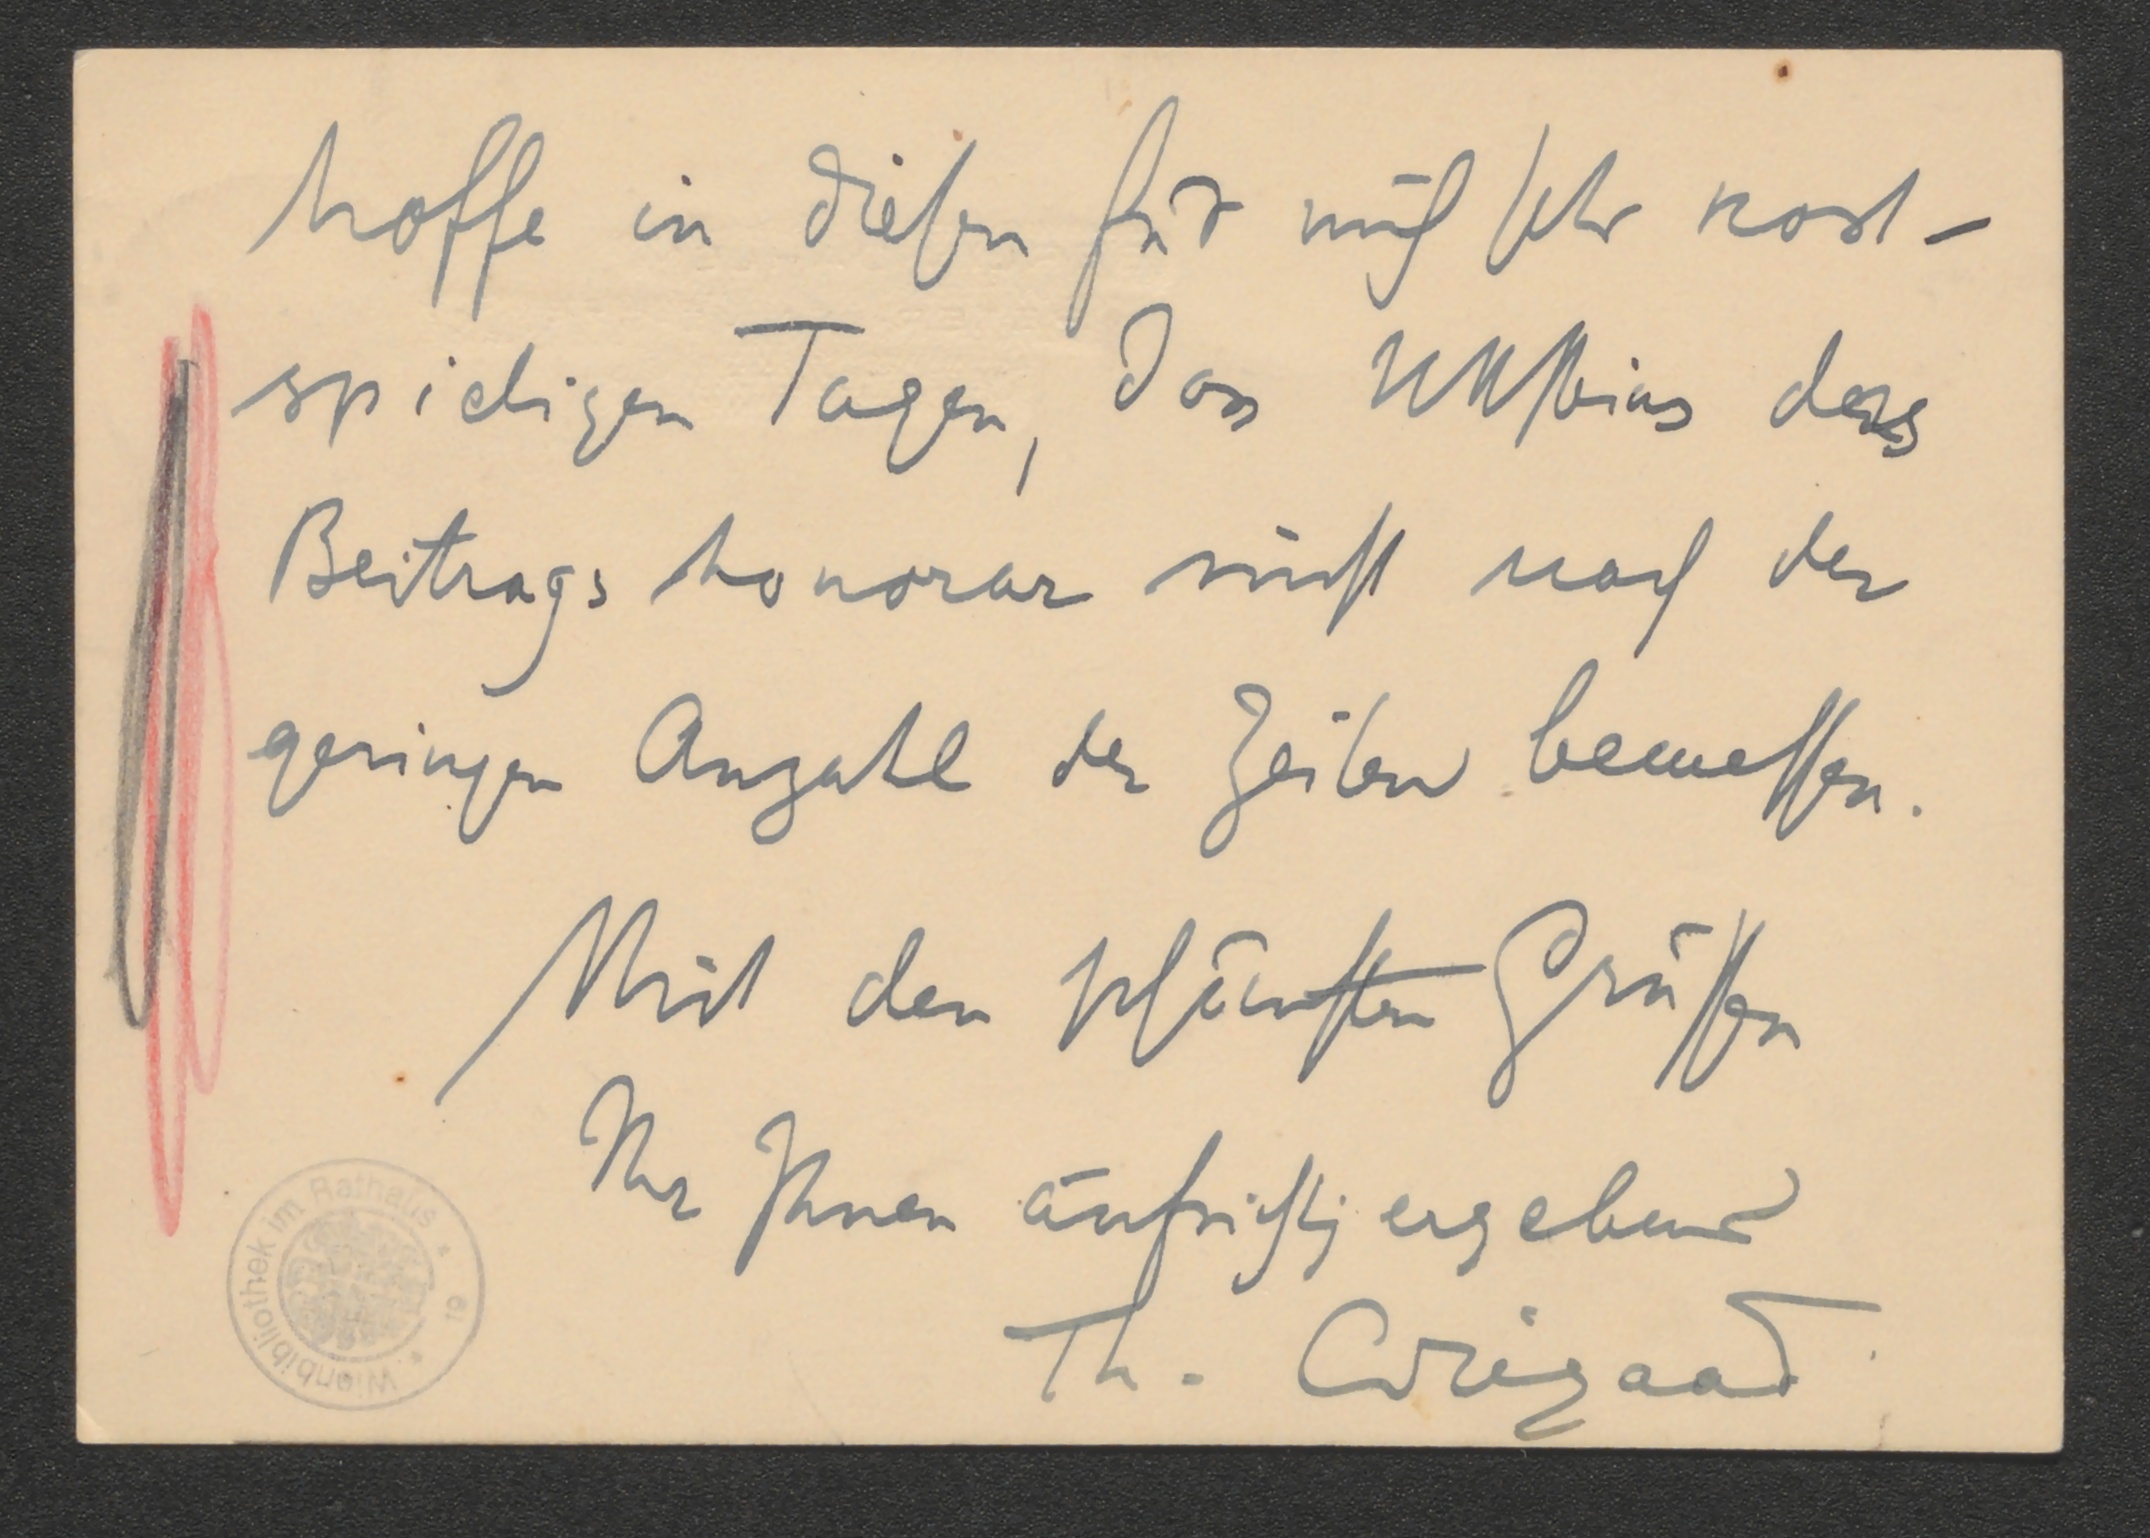 hoffe in diesen für mich sehr kost-
spieligen Tagen, dass das
Beitragshonorar nicht nach der
geringen Anzahl der Zeilen bemessen.
Mit den schönsten Grüssen
Ihr Ihnen aufrichtig ergebener
Th.
Wienbibliothek im Rathaus
19